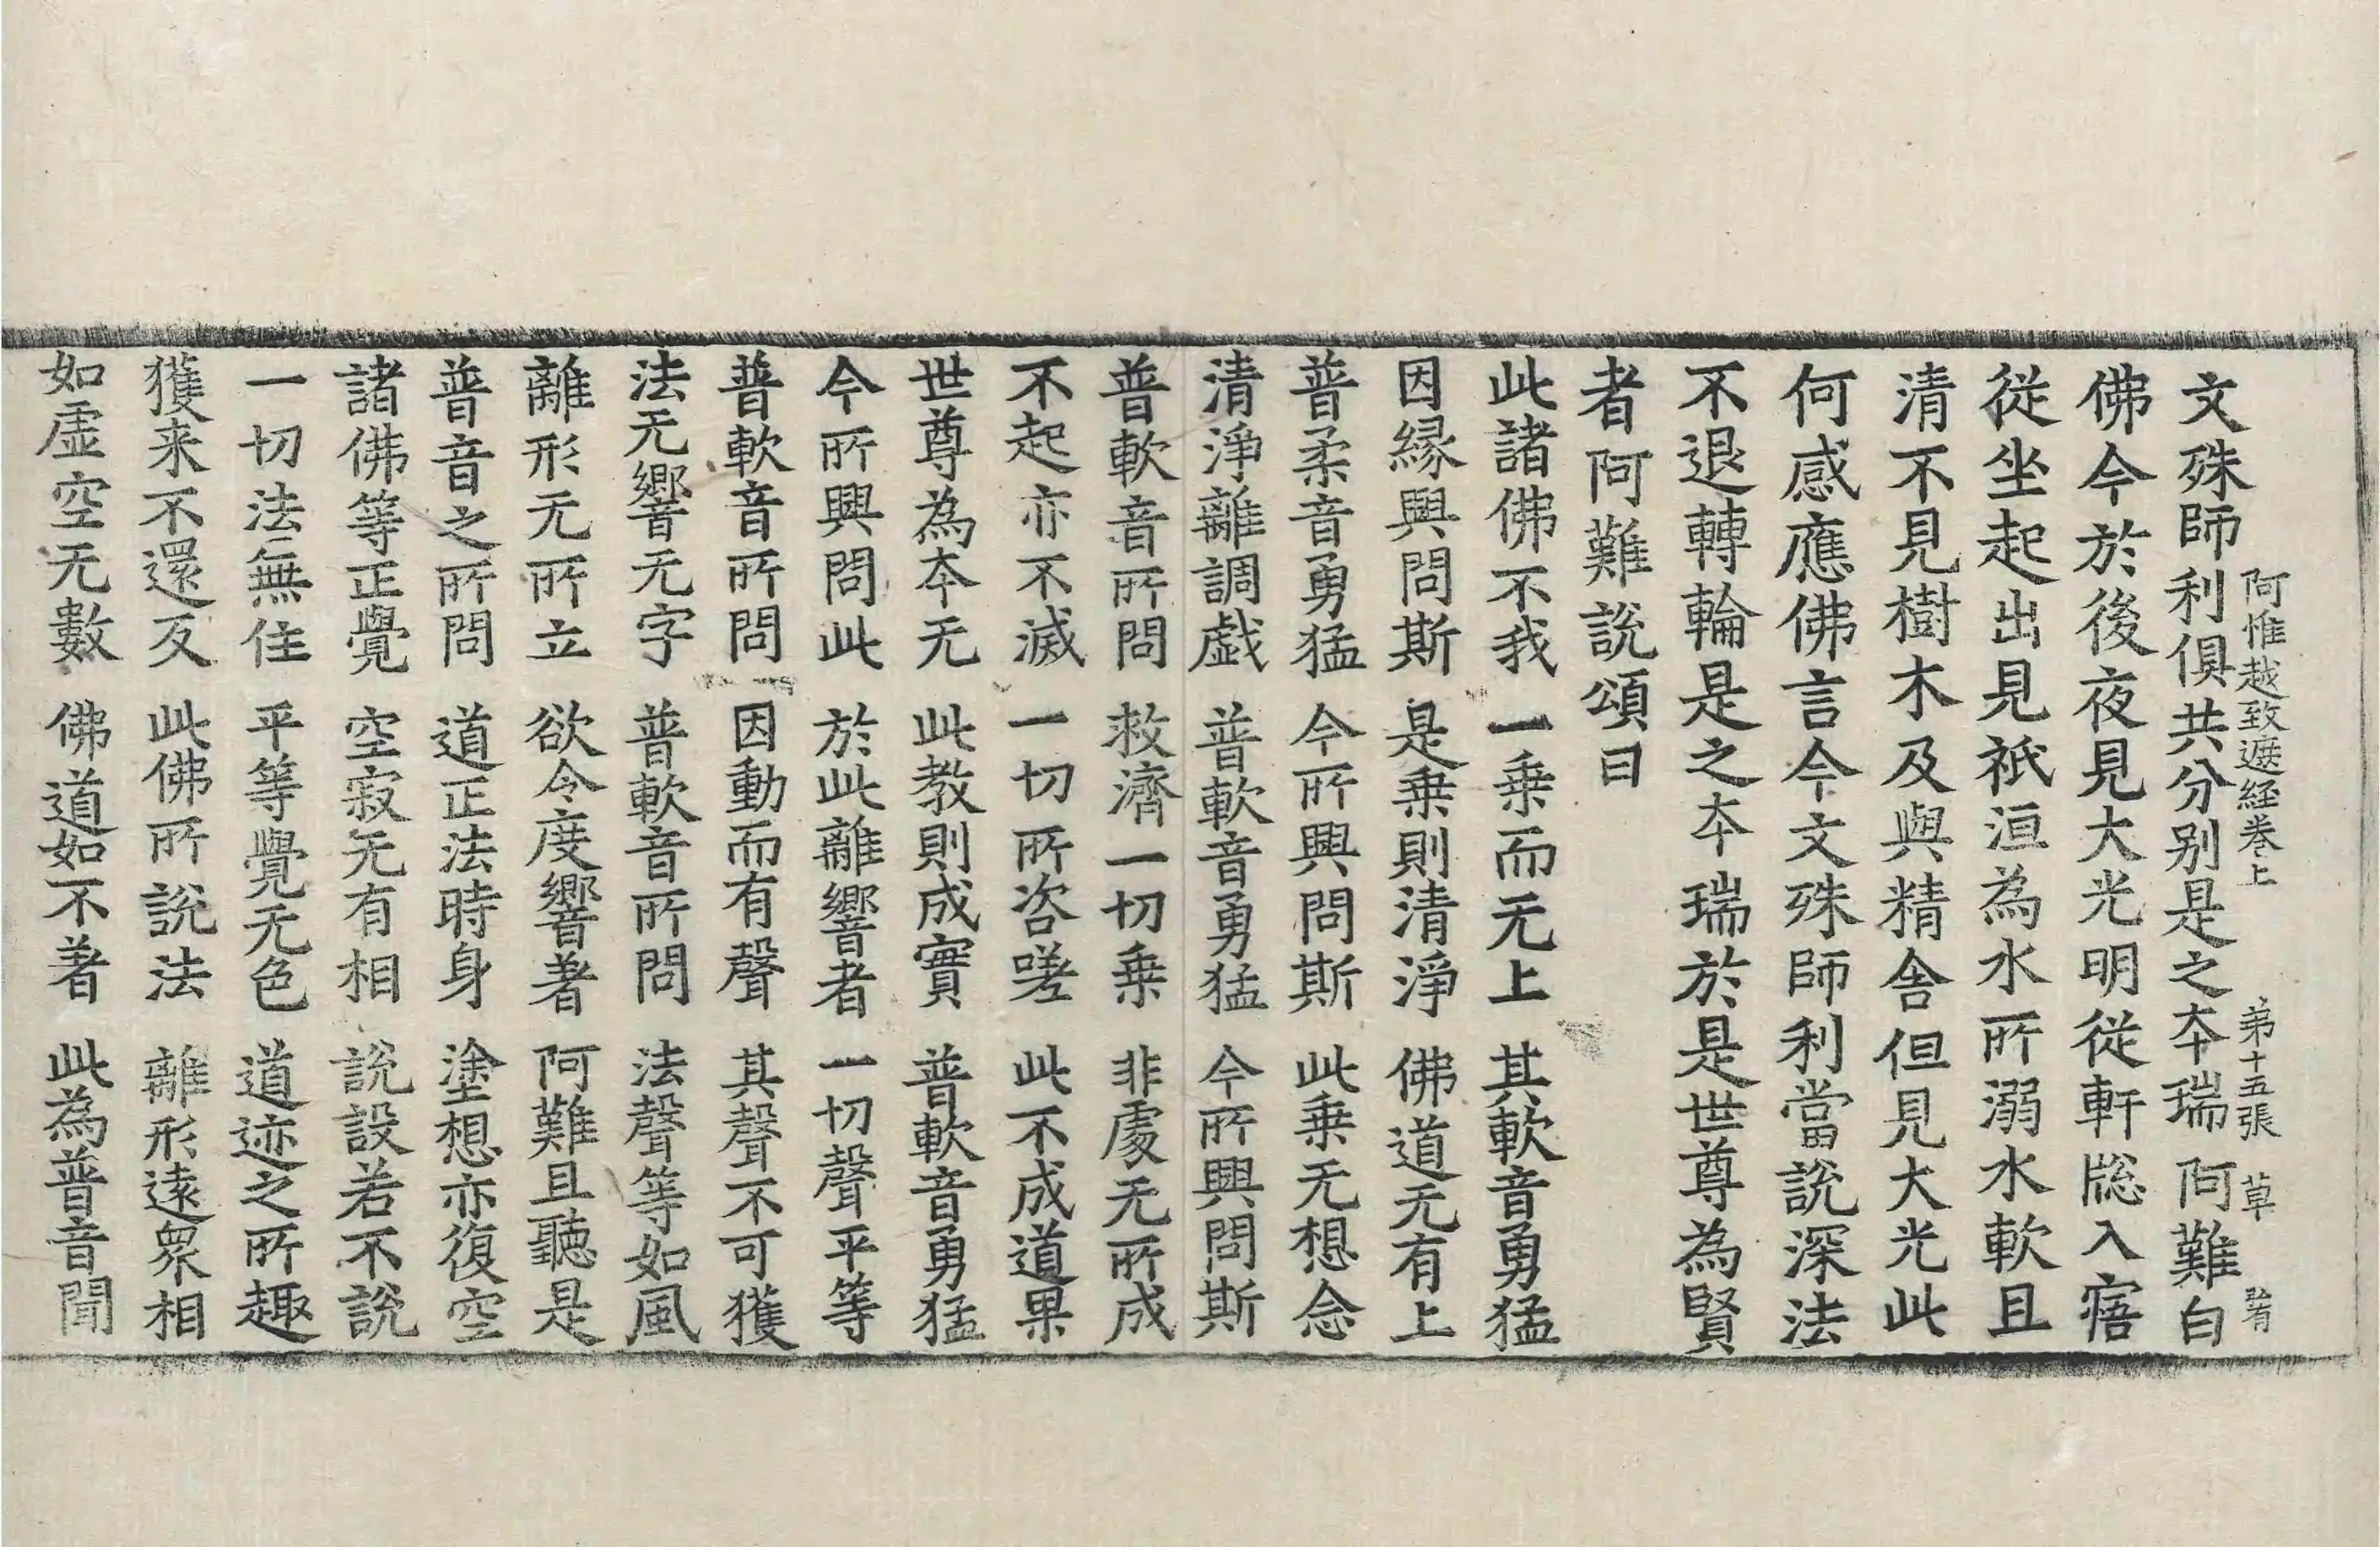 阿惟越致遮經卷上 第十五張 草
文殊師利俱共分别是之夲瑞 阿難白
佛今於後夜見大光明從軒牎入寤
從坐起出見祇洹為水所溺水軟且
清不見樹木及與精舎但見大光此
何感應佛言今文殊師利當說深法
不退轉輪是之夲瑞於是世尊為賢
者阿難說頌曰
此諸佛不我 一乗而无上 其軟音勇猛
因縁興問斯 是乗則清淨 佛道无有上
普柔音勇猛 今所興問斯 此乗无想念
清淨離調戲 普軟音勇猛 今所興問斯
普軟音所問 救濟一切乗 非處无所成
不起亦不滅 一切所咨嗟 此不成道果
世尊為夲无 此教則成實 普軟音勇猛
今所興問此 於此離響者 一切聲平等
普軟音所問 因動而有聲 其聲不可獲
法无響无字 普軟音所問 法聲等如風
離形无所立 欲令度響著 阿難且聽是
普音之所問 道正法時身 塗想亦復空
諸佛等正覺 空寂无有相 說設若不說
一切法無住 平等覺无色 道迹之所趣
獲来不還反 此佛所說法 離形遠衆相
如虛空无數 佛道如不著 此為普音聞